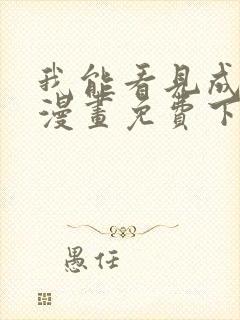 我能看見成
漫畫免費下
愚任